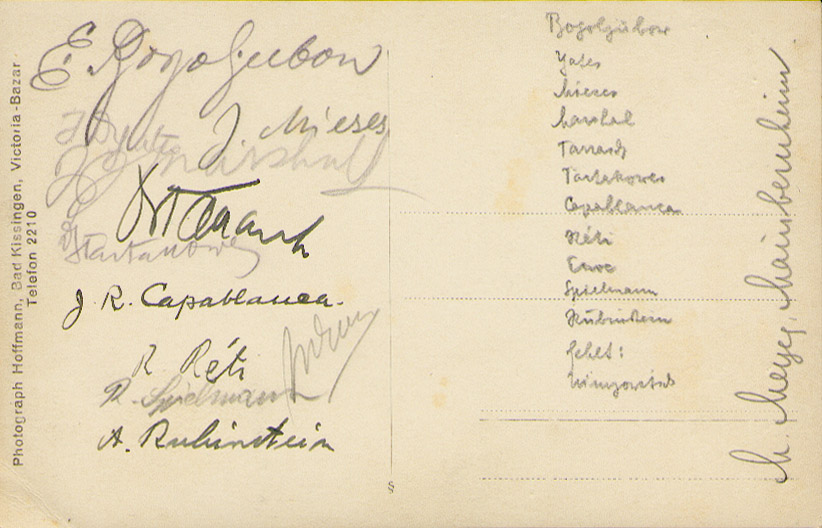 Photograph Hoffmann, Bad Kissingen, Victoria-Bazar
Telefon 2210
E Bogoljubow
J. Mieses
FDYates
FJ Marshall
Dr Tarrasch
Dr Tartakower
J. R. Capablanca.
R. Réti
R. Spielmann
A. Rubinstein
§
Bogoljubow
Yates
Mieses
Marshal
Tarrasch
Tartakower
Capablanca
Réti
Euwe
Spielmann
Rubinstein
fehlt:
Nimzowitsch
M. Meyer, Mainbernheim